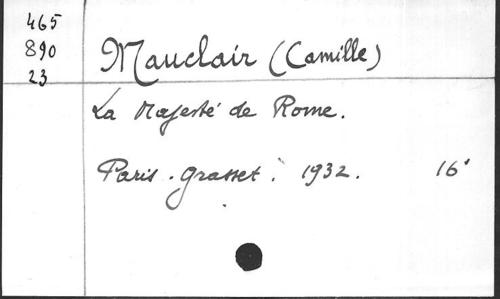 465
890
23
Mauclair (Camille)
La Majesté de Rome.
Paris. Grasset. 1932. 16°